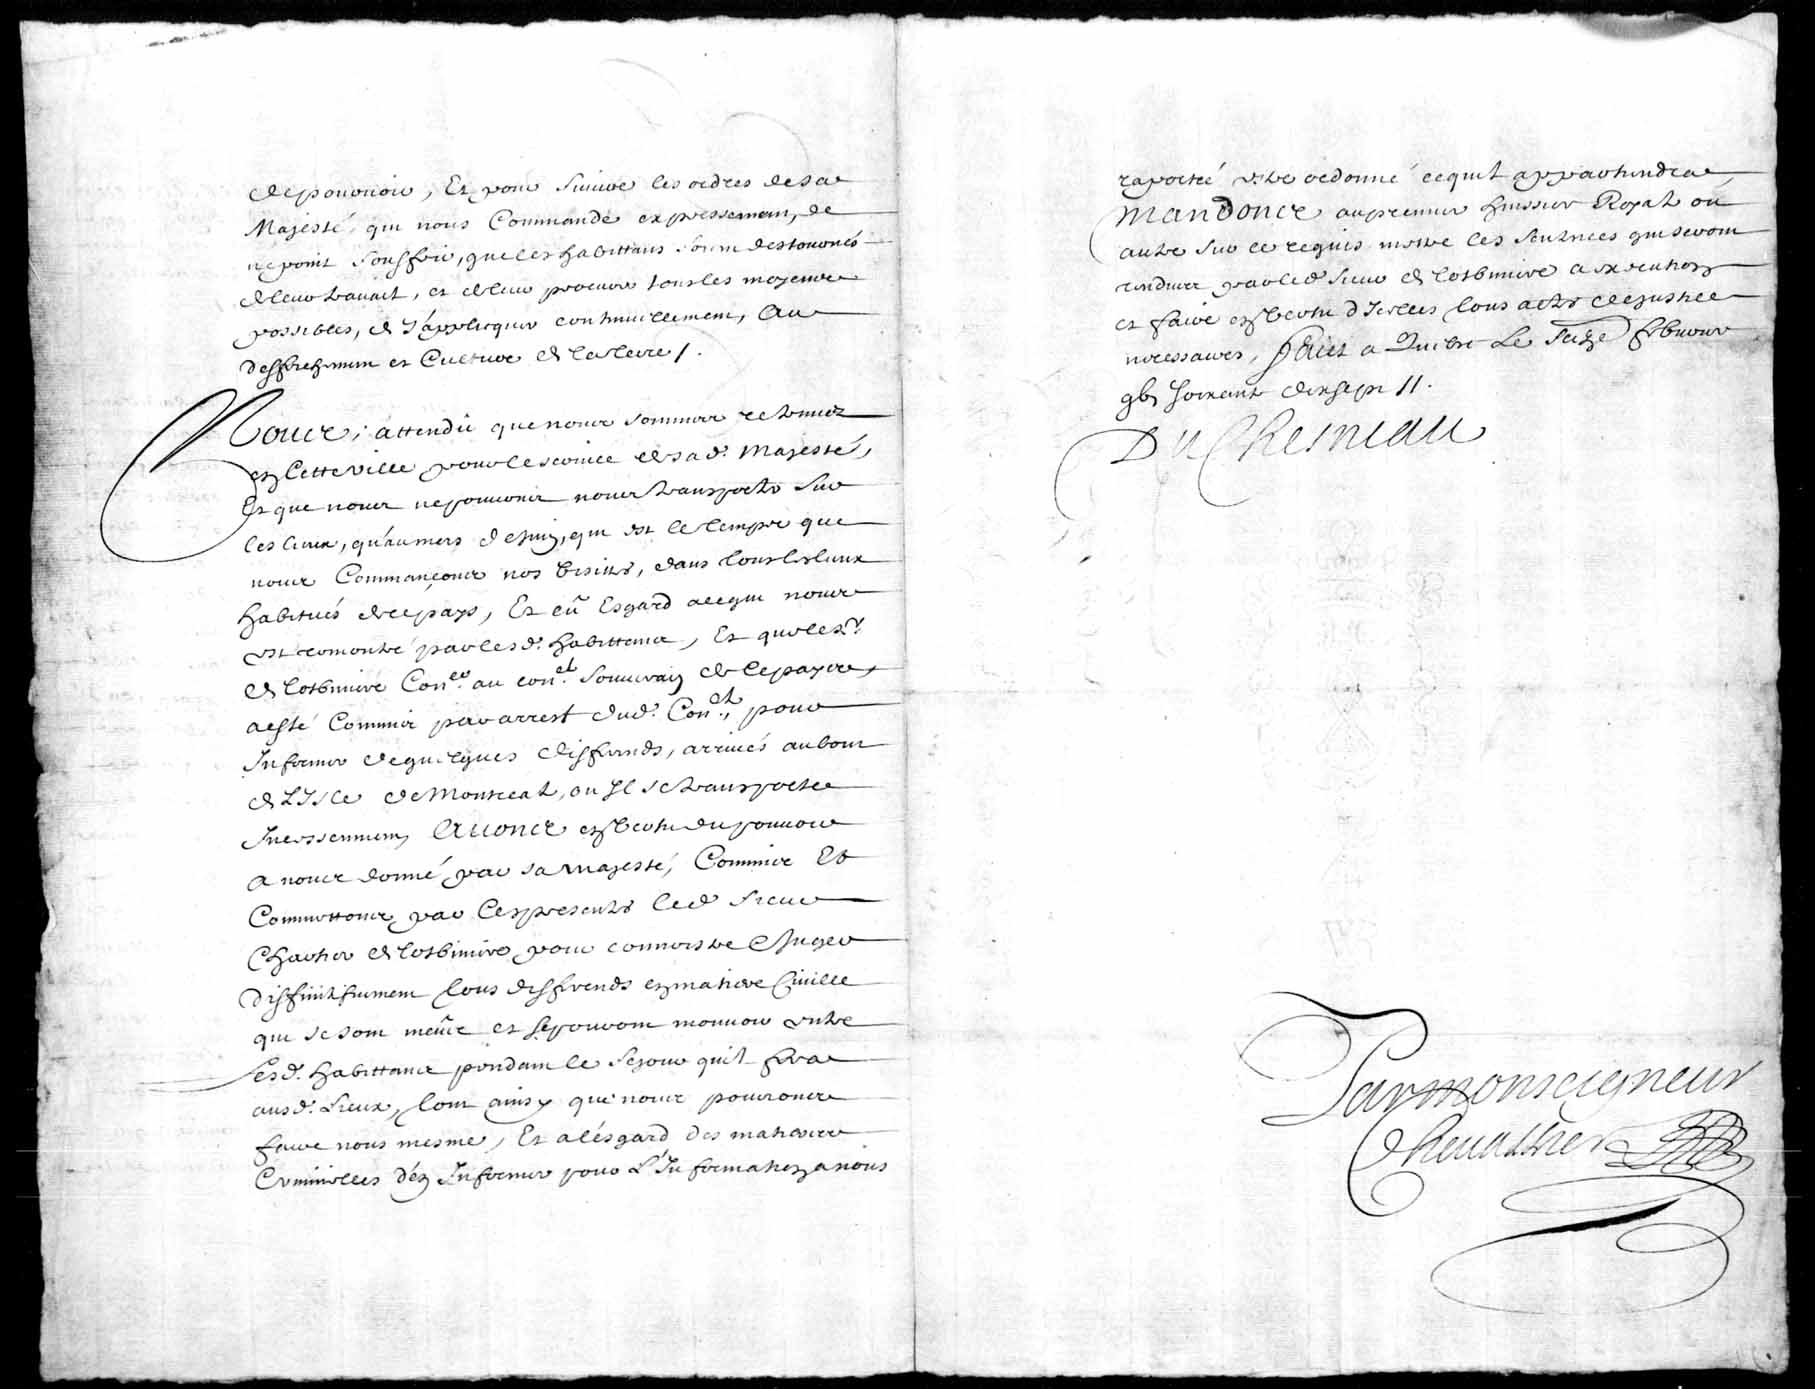 de pouruoir, Et pour Suiure les ordres de sa
Majesté, qui nous Commande expressemen, de
ne point Souffrir, que les habittans soient destournés
de leur trauail, et de leur procurer tous les moyens
possibles, de s'appliquer continuellement, Au
deffrichemen et Culture de la terre /.
Nous, attendu que nous sommes retenus
en Cette ville pour le seruice de sa d. Majesté,
Et que nous ne pouuons nous transporter sur
les lieux, qu'au mois de Juin, qui est le temps que
nous Commançons nos Visittes, dans tous les lieux
habitués de ce pays, Et eu Esgard a ce qui nous
est remontré par les d. habittans, Et que le Sr.
de Lotbiniere Coner. au conel. Souuerain de ce pays,
a esté Commis par arrest dud. Conel., pour
Informer de quelques differends, arriués au bout
de L'Isle de Montreal, ou Il se transporte
Incessemmen, Auons en Vertu du pouuoir
a nous donné par sa Majesté, Commis Et
Commettons par Ces presentes led. Sieur
Chartier de Lotbiniere pour connoistre & Juger
diffinitiuemen tous differends en matiere Ciuille
qui se sont meûs et se pouront mouuoir entre
Lesd. habittans pendant le Sejour qu'il fera
ausd. Lieux, tout ainsy que nous pourrons
faire nous mesme, Et a lésgard des matieres
Criminelles d'én Informer pour L'Information a nous
raportée estre ordonné ce quil appartiendra,
Mandons au premier huissier Royal ou
autre sur ce requis mettre les sentences qui seront
rendues par led. Sieur de Lotbiniere a execution
et faire en Vertu d'Icelles tous actes de justice
necessaires, Faict a Quebec Le Seize feburier
gbj soixante dix sept //.
DuChesneau
Par monseigneur
Cheuallier